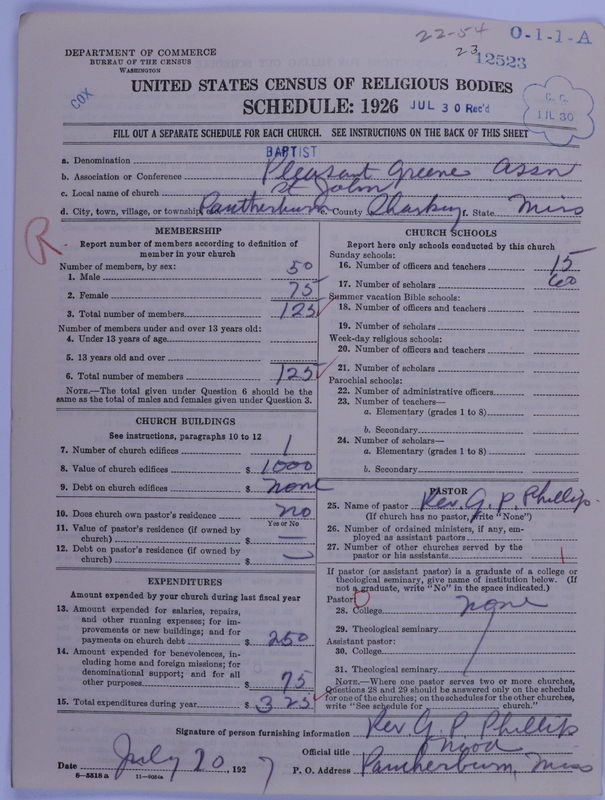 22-54 O-1-1-A
23
12523
DEPARTMENT OF COMMERCE
BUREAU OF THE CENSUS
WASHINGTON
UNITED STATES CENSUS OF RELIGIOUS BODIES
COX
SCHEDULE: 1926 JUL 30 Rec'd
G. C.
JUL 30
FILL OUT A SEPARATE SCHEDULE FOR EACH CHURCH. SEE INSTRUCTIONS ON THE BACK OF THIS SHEET
BAPTIST
a. Denomination
b. Association or Conference Pleasant Greene Assn
c. Local name of church St John
d. City, town, village, or township Pantherburn e. County Sharkey f. State Miss
R
MEMBERSHIP
Report number of members according to definition of
member in your church
Number of members, by sex:
1. Male 50
2. Female 75
3. Total number of members 125
Number of members under and over 13 years old:
4. Under 13 years of age
5. 13 years old and over
6. Total number of members 125
NOTE.—The total given under Question 6 should be the
same as the total of males and females given under Question 3.
CHURCH BUILDINGS
See instructions, paragraphs 10 to 12
7. Number of church edifices 1
8. Value of church edifices $ 1000
9. Debt on church edifices $ none
10. Does church own pastor's residence no
Yes or No
11. Value of pastor's residence (if owned by
church) $ —
12. Debt on pastor's residence (if owned by
church) $ —
EXPENDITURES
Amount expended by your church during last fiscal year
13. Amount expended for salaries, repairs,
and other running expenses; for im-
provements or new buildings; and for
payments on church debt $ 250
14. Amount expended for benevolences, in-
cluding home and foreign missions; for
denominational support; and for all
other purposes $ 75
15. Total expenditures during year $ 325
CHURCH SCHOOLS
Report here only schools conducted by this church
Sunday schools:
16. Number of officers and teachers 15
17. Number of scholars 60
Summer vacation Bible schools:
18. Number of officers and teachers
19. Number of scholars
Week-day religious schools:
20. Number of officers and teachers
21. Number of scholars
Parochial schools:
22. Number of administrative officers
23. Number of teachers—
a. Elementary (grades 1 to 8)
b. Secondary
24. Number of scholars—
a. Elementary (grades 1 to 8)
b. Secondary
PASTOR
25. Name of pastor Rev. G. P. Phillip
(If church has no pastor, write "None")
26. Number of ordained ministers, if any, em-
ployed as assistant pastors
27. Number of other churches served by the
pastor or his assistants 1
If pastor (or assistant pastor) is a graduate of a college or
theological seminary, give name of institution below. (If
not a graduate, write "No" in the space indicated.)
Pastor: O
28. College none
29. Theological seminary
Assistant pastor:
30. College
31. Theological seminary
NOTE.—Where one pastor serves two or more churches,
Questions 28 and 29 should be answered only on the schedule
for one of the churches; on the schedules for the other churches,
write "See schedule for church."
Signature of person furnishing information Rev G. P. Phillip
Official title
Date July 20, 1927 P. O. Address Pantherburn, Miss
8-5518a 11-9084a